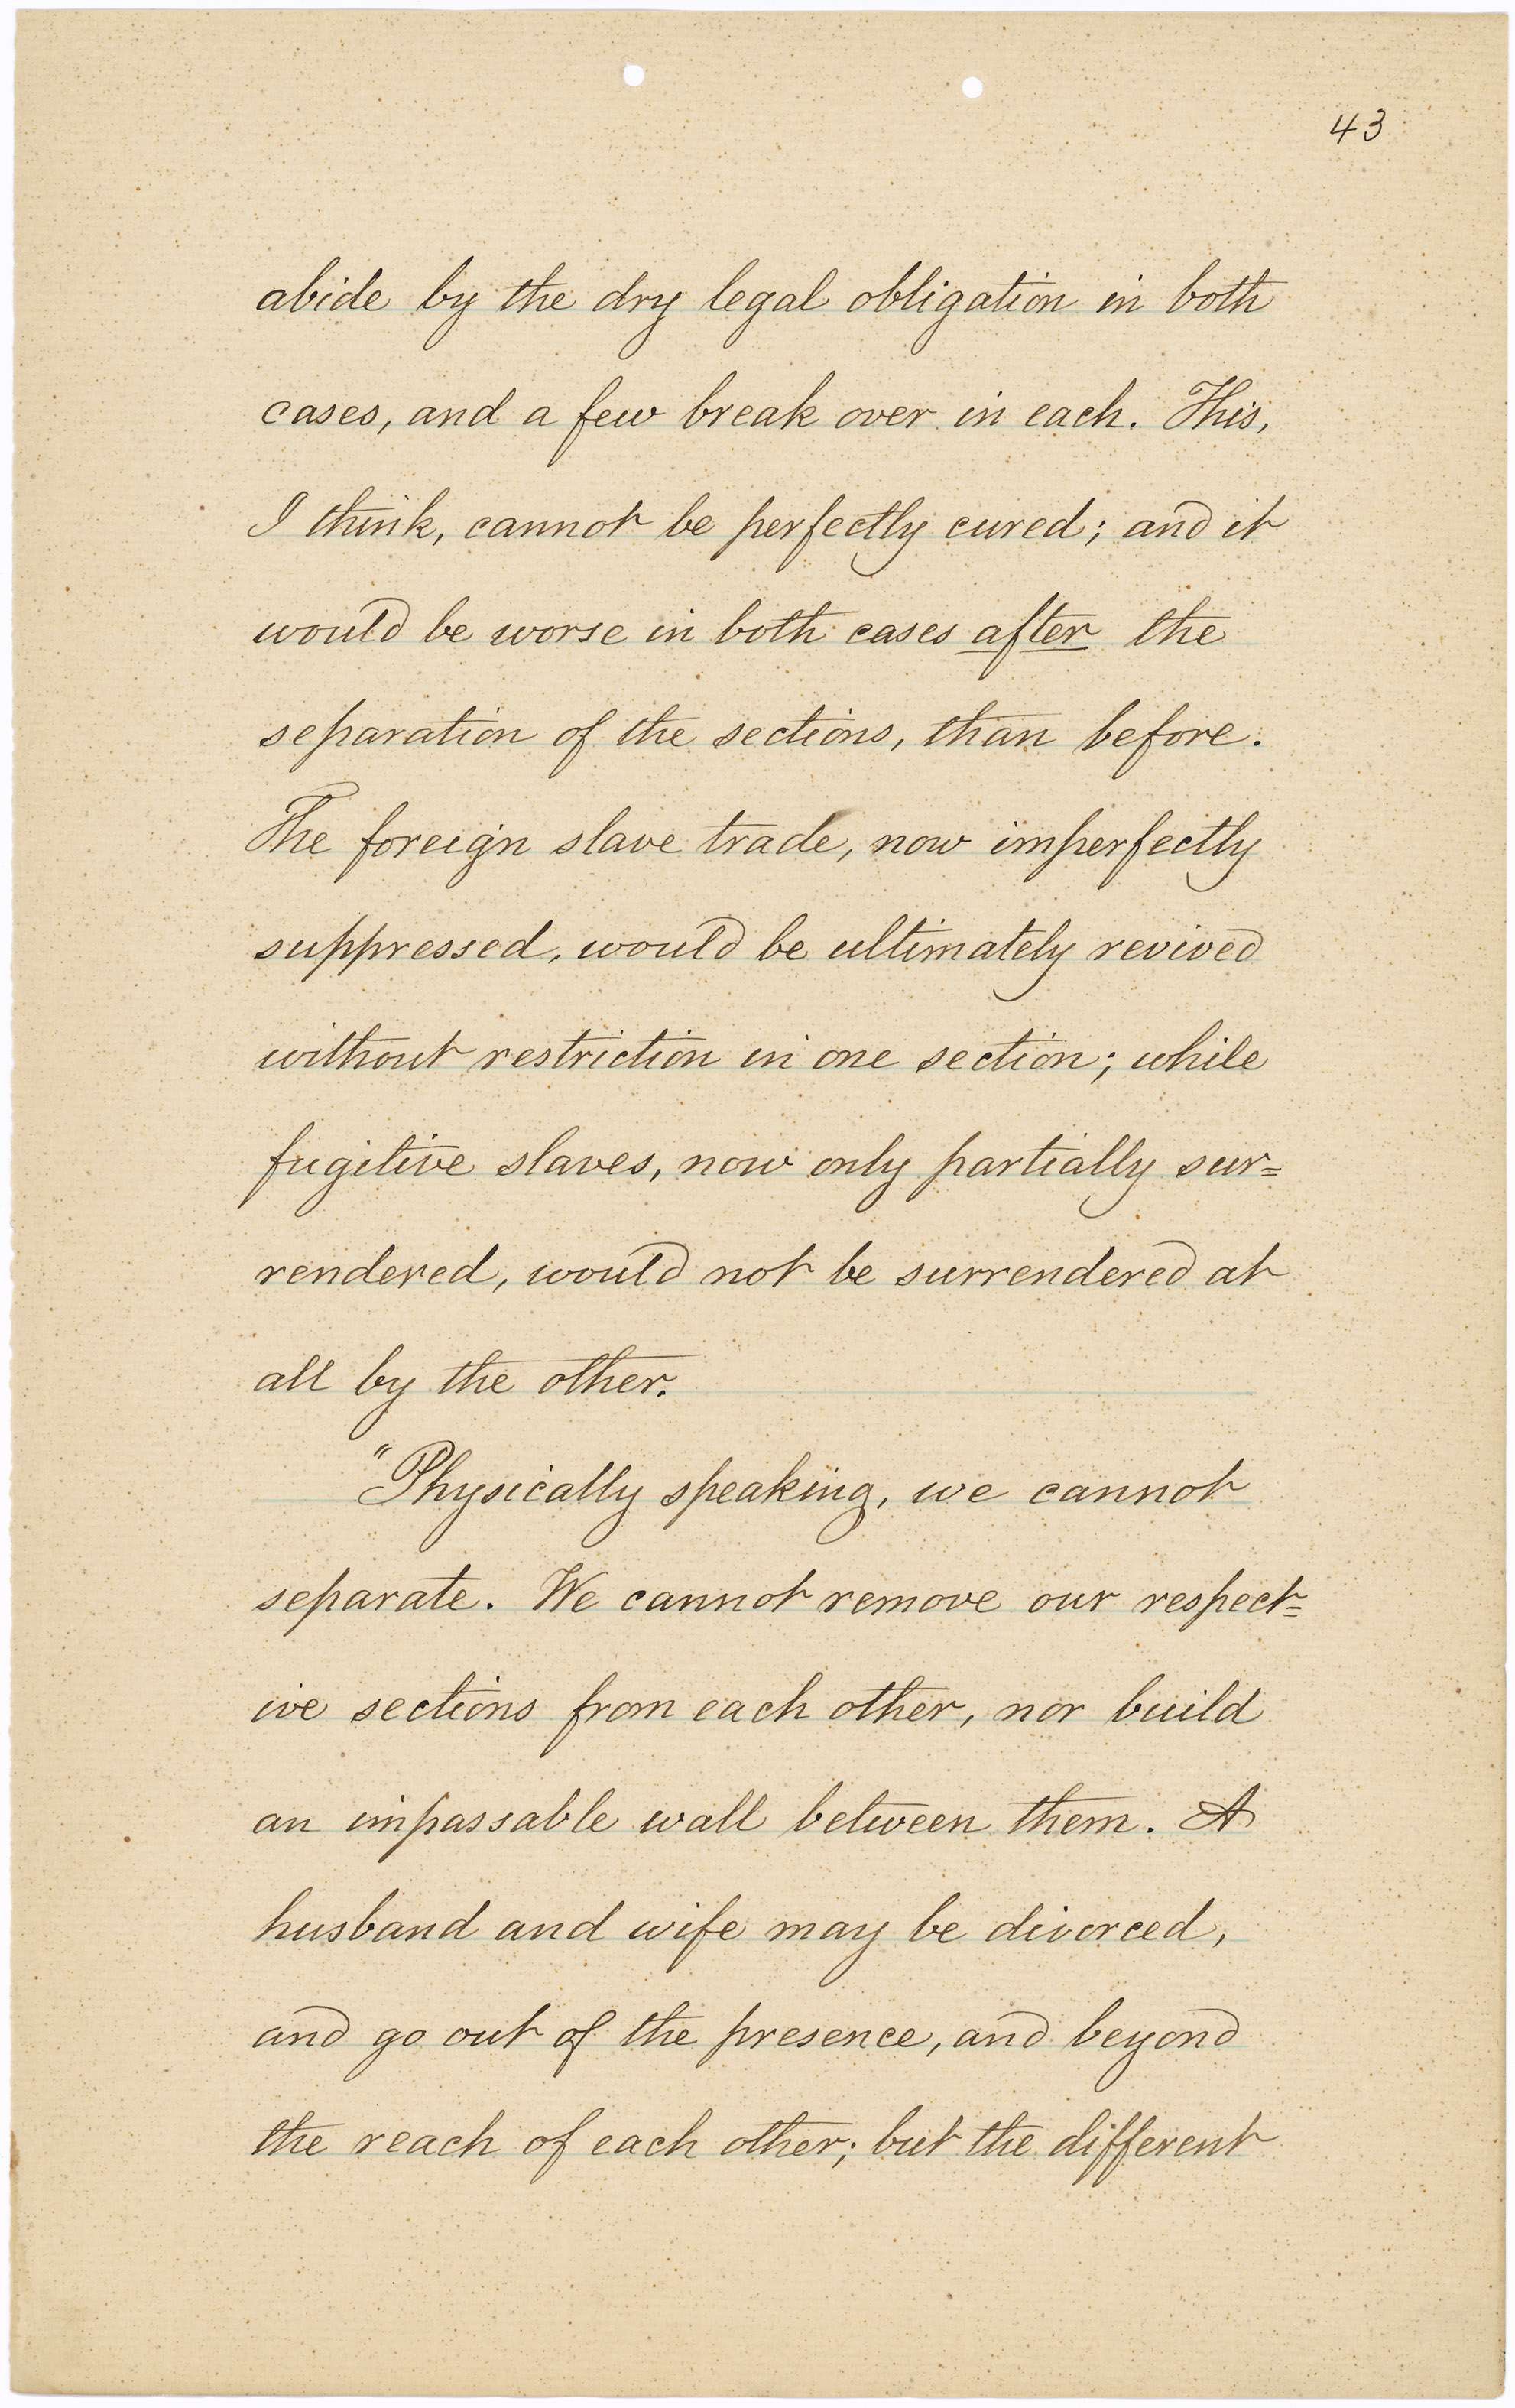 43
abide by the dry legal obligation in both
cases, and a few break over in each. This,
I think, cannot be perfectly cured; and it
would be worse in both cases after the
separation of the sections, than before.
The foreign slave trade, now imperfectly
suppressed, would be ultimately revived
without restriction in one section; while
fugitive slaves, now only partially sur=
rendered, would not be surrendered at
all by the other.
"Physically speaking, we cannot
separate. We cannot remove our respect=
ive sections from each other, nor build
an impassable wall between them. A
husband and wife may be divorced,
and go out of the presence, and beyond
the reach of each other; but the different